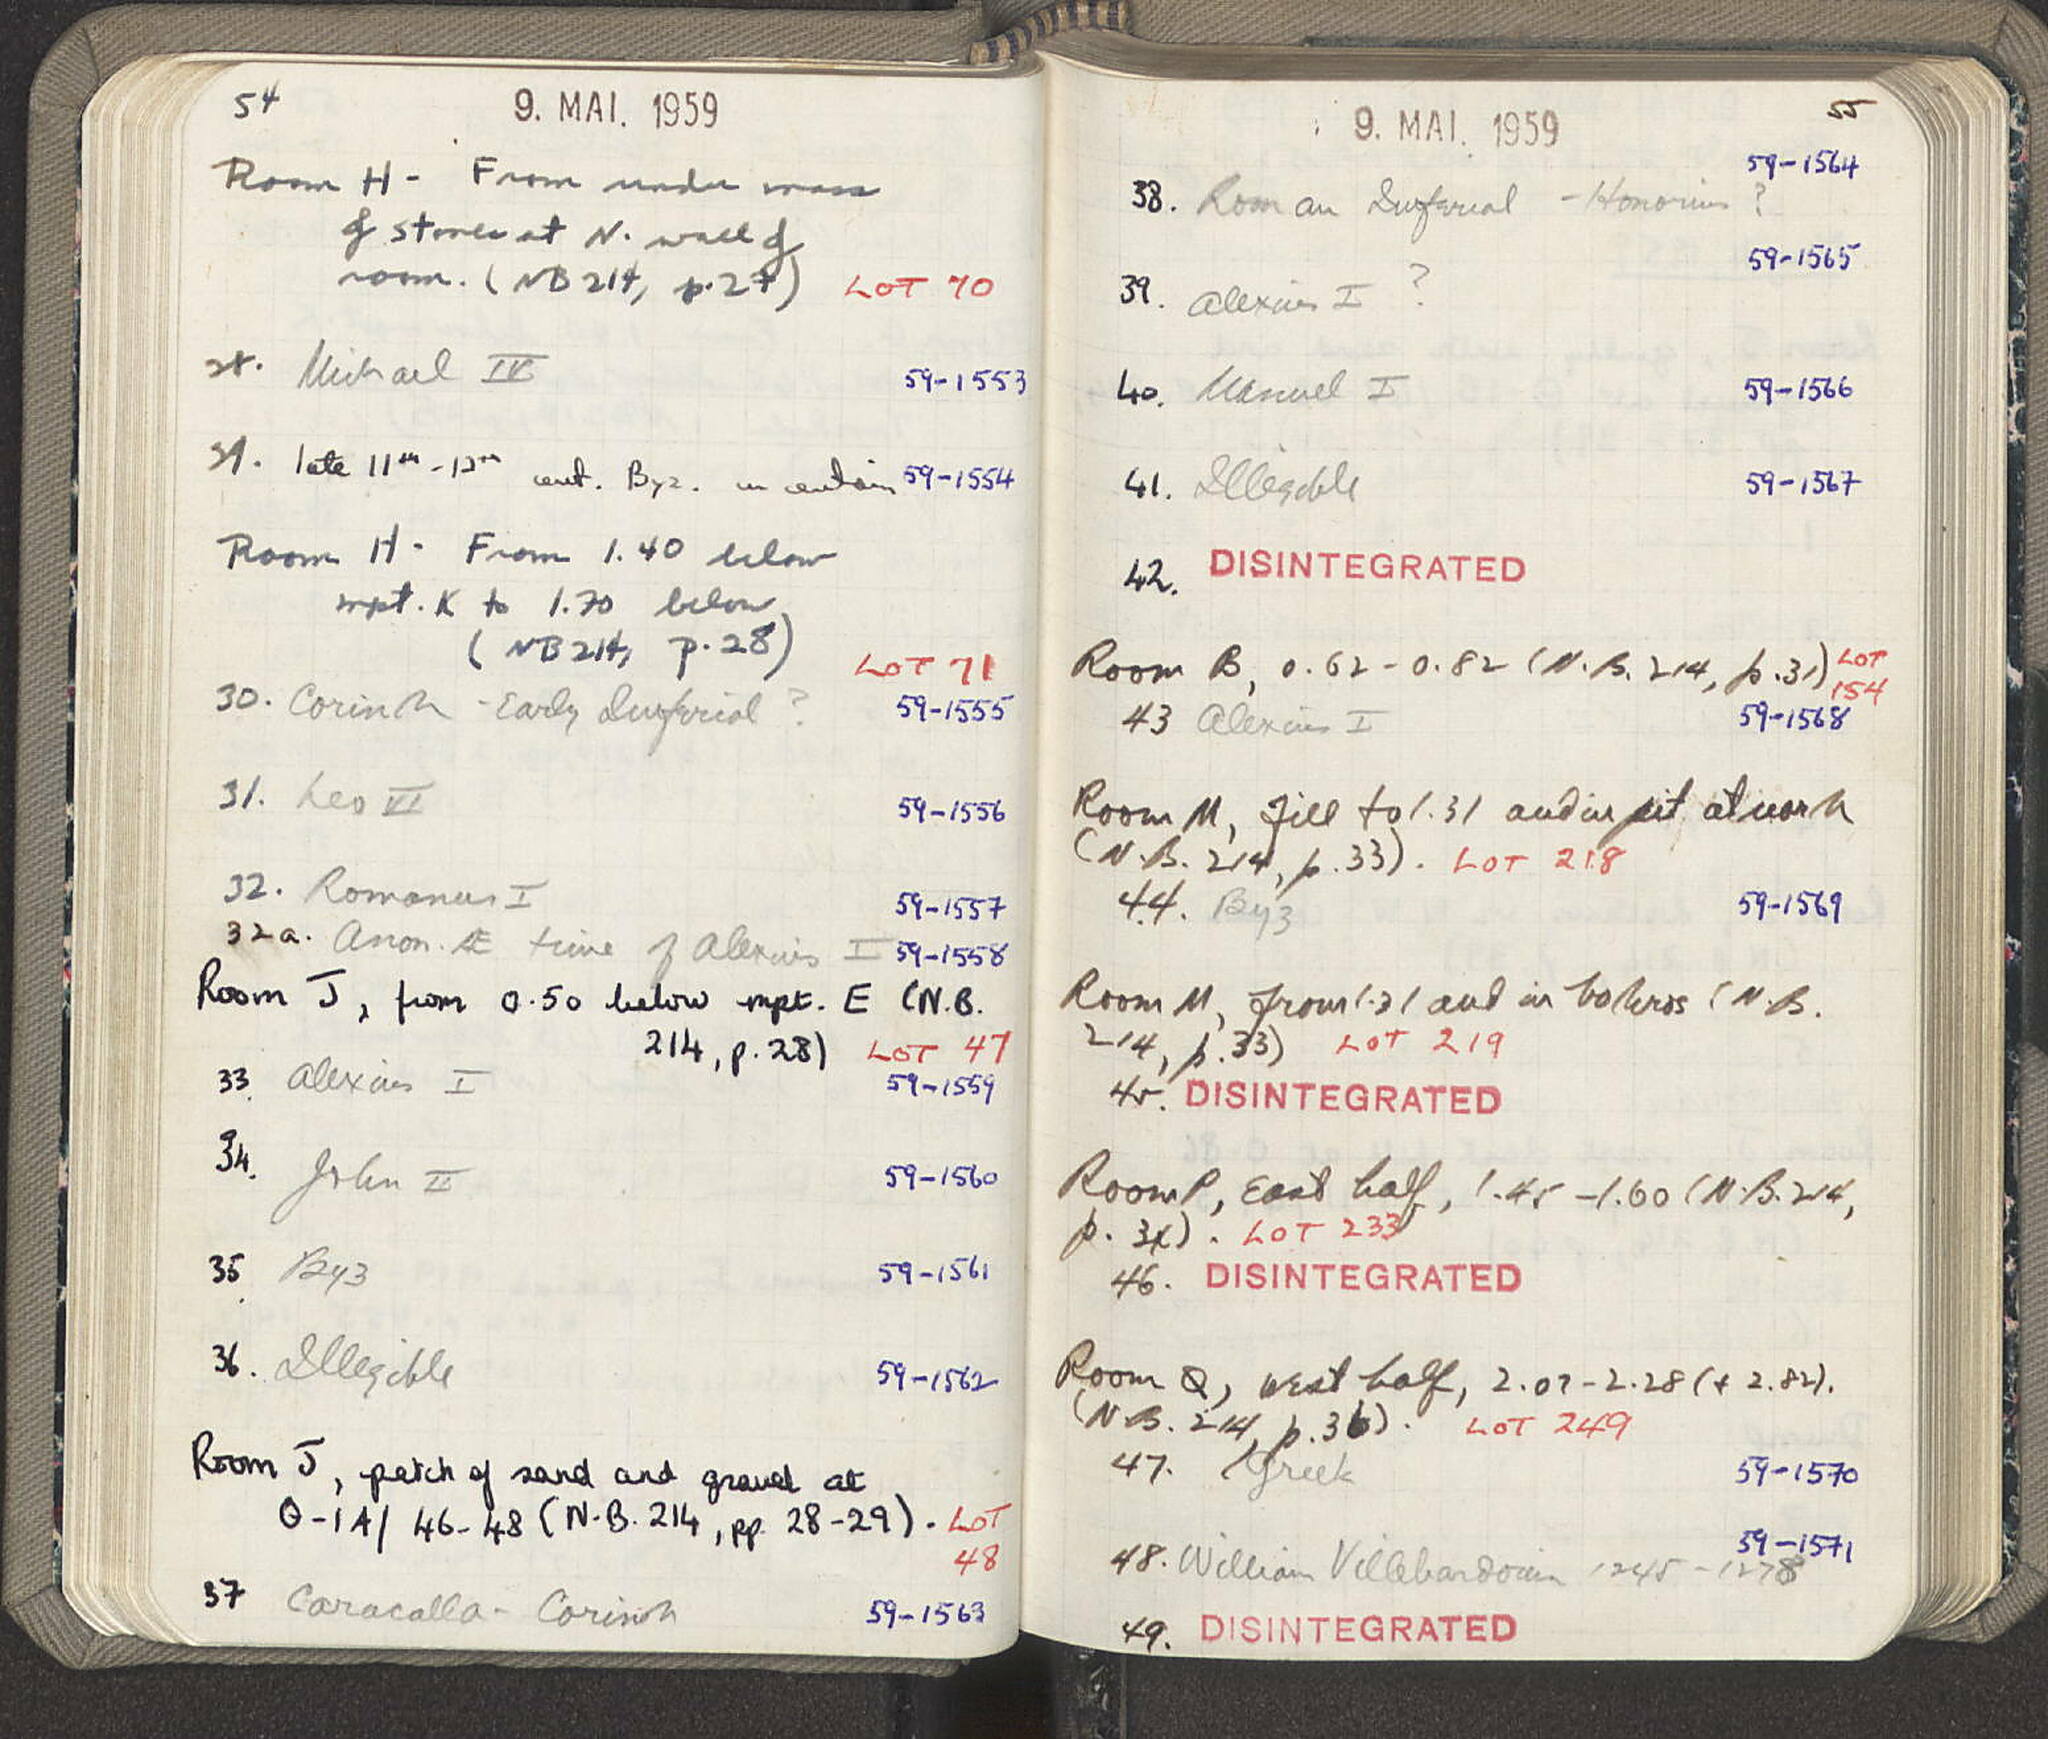 54
9. MAI. 1959
Room H - From under mass
of stones at N. wall of
room. (NB 214, p. 27) LOT 70
28. Michael IV 59-1553
29. late 11th - 12th cent. Byz. uncertain 59-1554
Room H - From 1.40 below
mpt. K to 1.70 below
(NB 214, p. 28)
LOT 71
30. Corinth - Early Imperial ? 59-1555
31. Leo VI 59-1556
32. Romanus I 59-1557
32a. Anon. Æ time of Alexius I 59-1558
Room J, from 0.50 below mpt. E (N.B.
214, p. 28) LOT 47
33. Alexius I 59-1559
34. John II 59-1560
35. Byz 59-1561
36. Illegible 59-1562
Room J, patch of sand and gravel at
O-1A/ 46-48 (N.B. 214, pp. 28-29). LOT
48
37 Caracalla - Corinth 59-1563
55
9. MAI. 1959
59-1564
38. Roman Imperial - Honorius ?
59-1565
39. Alexius I ?
40. Manuel I 59-1566
41. Illegible 59-1567
42. DISINTEGRATED
Room B, 0.62-0.82 (N.B. 214, p. 31) LOT
154
43 Alexius I 59-1568
Room M, fill to 1.31 and in pit at north
(N.B. 214, p. 33). LOT 218
44. Byz 59-1569
Room M, from 1.31 and in bothros (N.B.
214, p. 33) LOT 219
45. DISINTEGRATED
Room P, east half, 1.45-1.60 (N.B. 214,
p. 34). LOT 233
46. DISINTEGRATED
Room Q, west half, 2.07-2.28 (+ 2.82).
(N.B. 214, p. 36). LOT 249
47. Greek 59-1570
59-1571
48. William Villehardouin 1245-1278
49. DISINTEGRATED